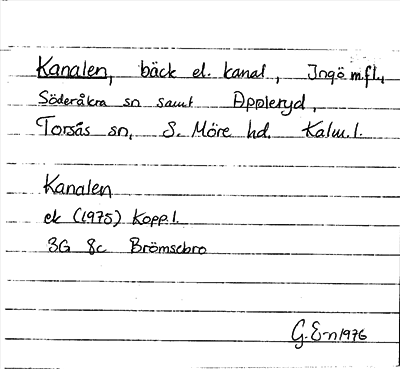 Kanalen, bäck el. kanal, Ingö m.fl.,
Söderåkra sn samt Appleryd,
Torsås sn, S. Möre hd. Kalm.l.
Kanalen
ek (1975) Kopp.l.
3G 8c Brömsebro
G.E-n 1976